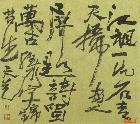 江祖一片石青
天掃畫
屏題詩留
萬古綠字錦
苔生